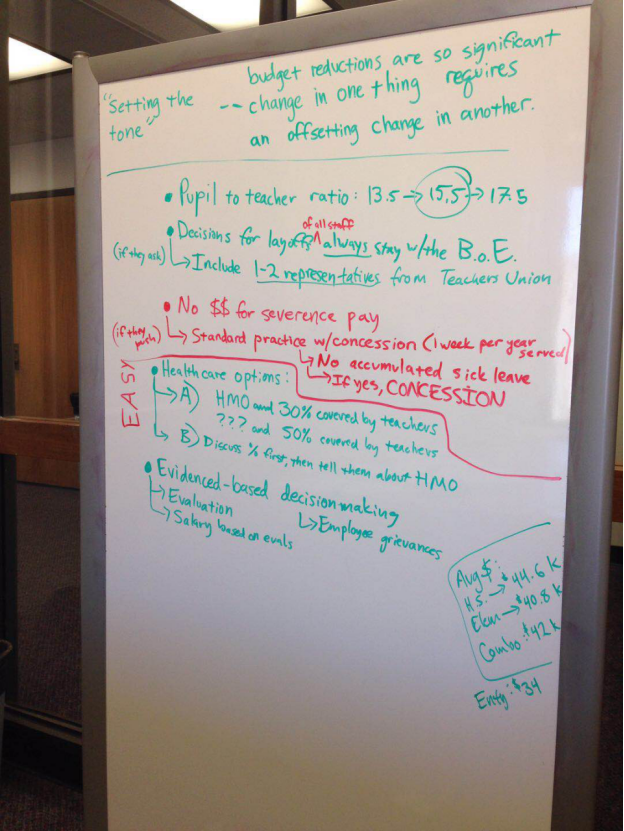 "Setting the tone" -- budget reductions are so significant
change in one thing requires
an offsetting change in another.
• Pupil to teacher ratio: 13.5 → 15.5 → 17.5
• Decisions for layoffs ^ of all staff always stay w/the B.o.E.
(if they ask) ↳ Include 1-2 representatives from Teachers Union
• No $$ for severence pay
(if they push) ↳ Standard practice w/concession (1 week per year served)
↳ No accumulated sick leave
↳ If yes, CONCESSION
EASY
• Healthcare options:
↳ A) HMO and 30% covered by teachers
??? and 50% covered by teachers
↳ B) Discuss % first, then tell them about HMO
• Evidenced-based decisionmaking
↳ Evaluation
↳ Salary based on evals
↳ Employee grievances
Avg $:
H.S. → $44.6 k
Elem → $40.8 k
Combo: $42 k
Entry: $34